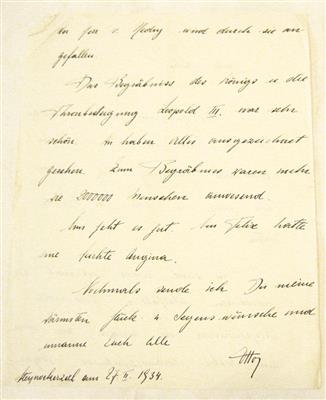 der Frr v. Hedry und durch sie an
gefallen
Das Begräbniss des Königs u die
Thronbesteigung Leopold III. war sehr
schön. haben Alles ausgezeichnet
gesehen. Zum Begräbniss waren mehr
2000000 Menschen anwesend.
Uns geht es gut. Felix hatte
Angina.
Nochmals sende ich Dir meine
wärmsten Glück u Segenswünsche und
umarme Euch Alle
Otto
Steynockerzeel am 27 II. 1934.